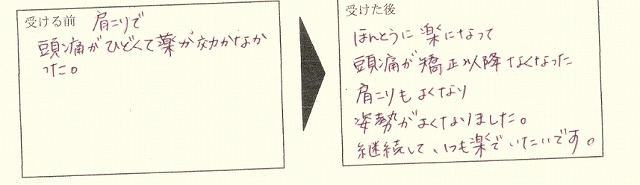 受ける前 肩こりで
頭痛がひどくて薬が効かなか
った。
受けた後
ほんとうに楽になって
頭痛が矯正以降なくなった
肩こりもよくなり
姿勢がよくなりました。
継続して、いつも楽でいたいです。